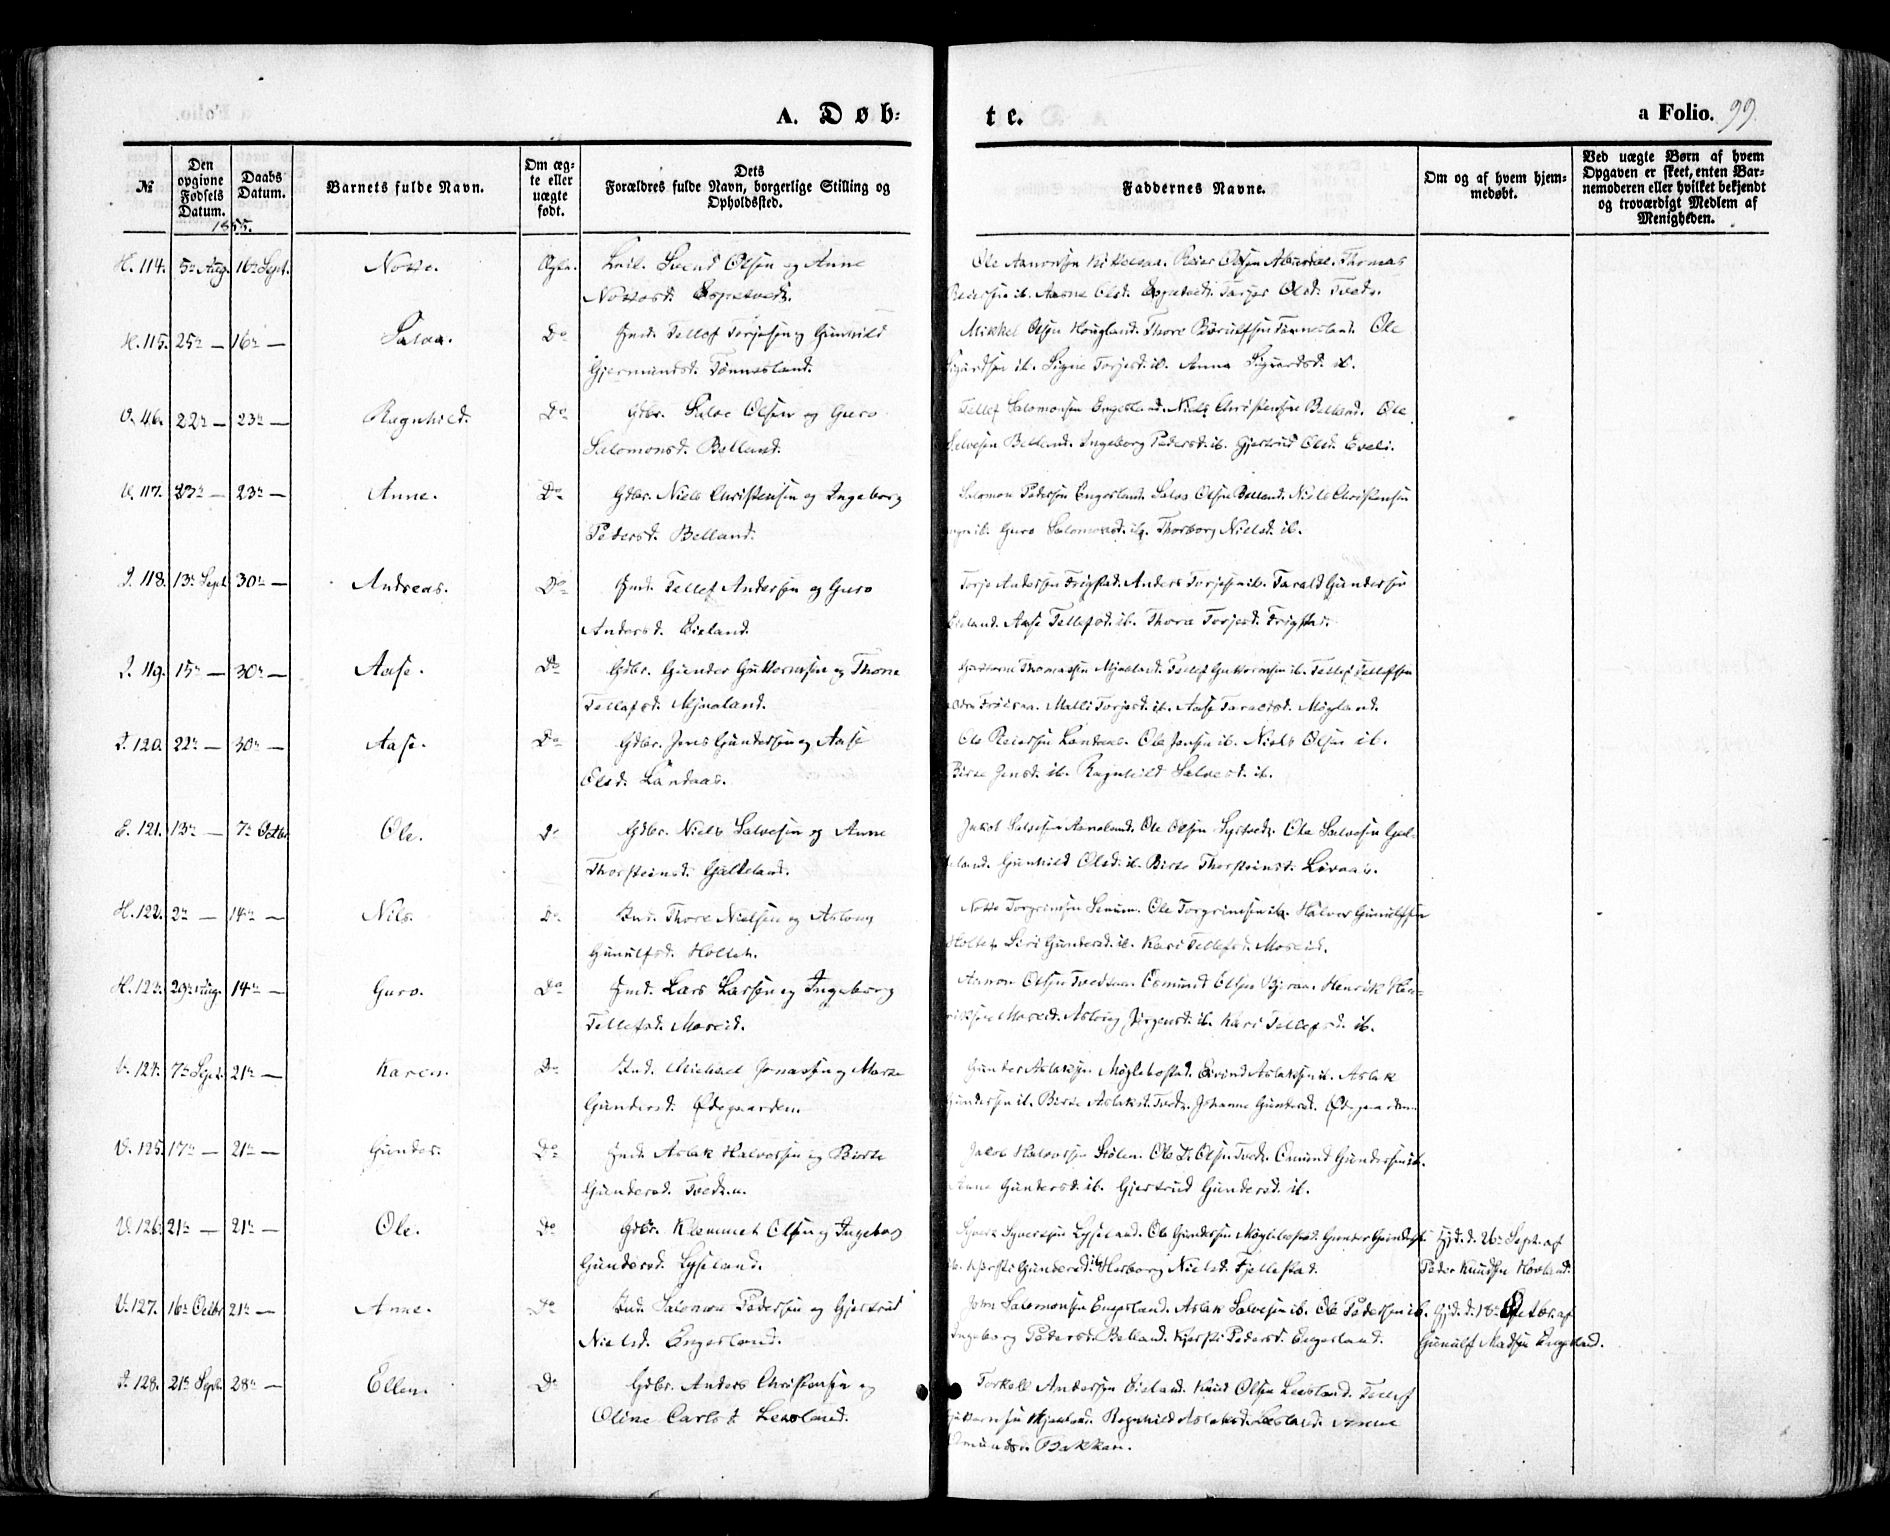 A. Døb-
te.
a Folio. 99.
№
Den opgivne Fødsels Datum.
Daabs Datum.
Barnets fulde Navn.
Om ægte eller uægte født.
Dets Forældres fulde Navn, borgerlige Stilling og Opholdssted.
Faddernes Navne.
Om og af hvem hjemmedøbt.
Ved uægte Børn af hvem Opgaven er skeet, enten Barnemoderen eller hvilket bekjendt og troværdigt Medlem af Menigheden.
1855.
H. 114. 5te Aug. 16de Sept. Ægte. Svend Olsen og Anne
Ole Aanonsen Reier Olsen Thomas
Pedersen ib. Aasne Olsd. Espetvedt. Tarjer Olsd. Tvedt.
H. 115. 25de — 16de — Salve. Do Tellef Torjesen og Gunvild
Gjermundsd. Tønnesland.
Mikkel Olsen Hougland. Thore Tønnesland. Ole
Sigurdsen ib. Signe Torjesd. ib. Anna Sigurdsd. ib.
V. 46. 22de — 23de — Ragnhild. Do Gdbr. Salve Olsen og Guro
Salomonsd. Belland.
Tellef Salomonsen Engesland. Niels Christensen Belland. Ole
Salvesen Belland. Ingeborg Pedersd. ib. Gjertrud Olsd. Eveli.
V. 117. 23de — 23de — Anne. Do Gdbr. Niels Christensen og Ingeborg
Pedersd. Belland.
Salomon Pedersen Engesland. Salve Olsen Belland. Niels Christensen
ib. Guro Salomonsd. ib. Thorborg Nielsd. ib.
118. 13de Sept. 30te — Andreas. Do Tellef Andersen og Guro
Andersd. Øieland.
Torje Andersen Frigstad. Anders Torjesen ib. Tarald Gundersen
Øieland. Aase Tellefsd. ib. Thora Torjesd. Frigstad.
119. 15de — 30te — Aase. Do Gdbr. Gunder Guttormsen og Thone
Tellefsd. Mjaaland.
Guttorm Thomassen Mjaaland. Tellef Guttormsen ib. Tellef Tellefsen
Frøisaa. Malli Torjesd. ib. Aase Taraldsd. Møgland.
120. 22de — 30te — Aase. Do Gdbr. Jens Gundersen og Aase
Olsd. Landaas.
Ole Reiersen Landaas. Ole Jensen ib. Niels Olsen ib.
Birte Jensd. ib. Ragnhild Salvesd. ib.
E. 121. 13de — 7de Octbr. Ole. Do Gdbr. Niels Salvesen og Anne
Thorsteinsd. Galteland.
Jakob Salvesen Aaneland. Ole Olsen Syrtvedt. Ole Salvesen Gal-
teland. Gunhild Olsd. ib. Birte Thorsteinsd. Livaas.
H. 122. 2de — 14de — Nils. Do Thore Nielsen og Aslaug
Gunulfsd. Holtet.
Torgrimsen Senum. Ole Torgrimsen ib. Halvor Gunulfsen
Holtet. Siri Gundersd. ib. Kari Tellefsd. Moseid.
H. 123. 29de Aug. 14de — Guro. Do Lars Larsen og Ingeborg
Tellefsd. Moseid.
Aanon Olsen Osmund Henrik Hen-
riksen Moseid. Aslaug Jørgensd. ib. Kari Tellefsd. ib.
V. 124. 7de Sept. 21de — Karen. Do Michael Jonassen og Marte
Gundersd. Ødegaarden.
Gunder Aslaksen Møglebostad. Eivind Aslaksen ib. Aslak
Gundersen ib. Birte Aslaksd. Tvedt. Johanne Gundersd. Ødegaarden.
V. 125. 17de — 21de — Gunder. Do Aslak Halvorsen og Birte
Gundersd.
Jakob Halvorsen Stølen. Ole Olsen Tvedt. Omund Gundersen ib.
Anne Gundersd. ib. Gjertrud Gundersd. ib.
V. 126. 21de — 21de — Ole. Do Gdbr. Klemmet Olsen og Ingeborg
Gundersd. Lyseland.
Syvert Syvertsen Lyseland. Ole Gundersen Møglebostad. Gunder Gundersen
ib. Kjersti Gundersd. ib. Herborg Nielsd. Fjellestad.
Hjd. d. 26de Sept. af
Peder Knudsen Hovland.
V. 127. 16de Octbr. 21de — Anne. Do Salomon Pedersen og Gjertrud
Nielsd. Engesland.
John Salomonsen Engesland. Aslak Salvesen ib. Ole Pedersen ib.
Ingeborg Pedersd. Belland. Kjersti Pedersd. Engesland.
Hjd. d. 18de Octbr. af
Gunulf Madsen Engesland.
128. 21de Sept. 28de — Ellen. Do Gdbr. Anders Christensen og
Oline Carlsd. Lersland.
Torkell Andersen Øieland. Knud Olsen Lersland. Tellef
Guttormsen Mjaaland. Ragnhild Aslaksd. Lersland. Anne
Omundsd. Bakken.